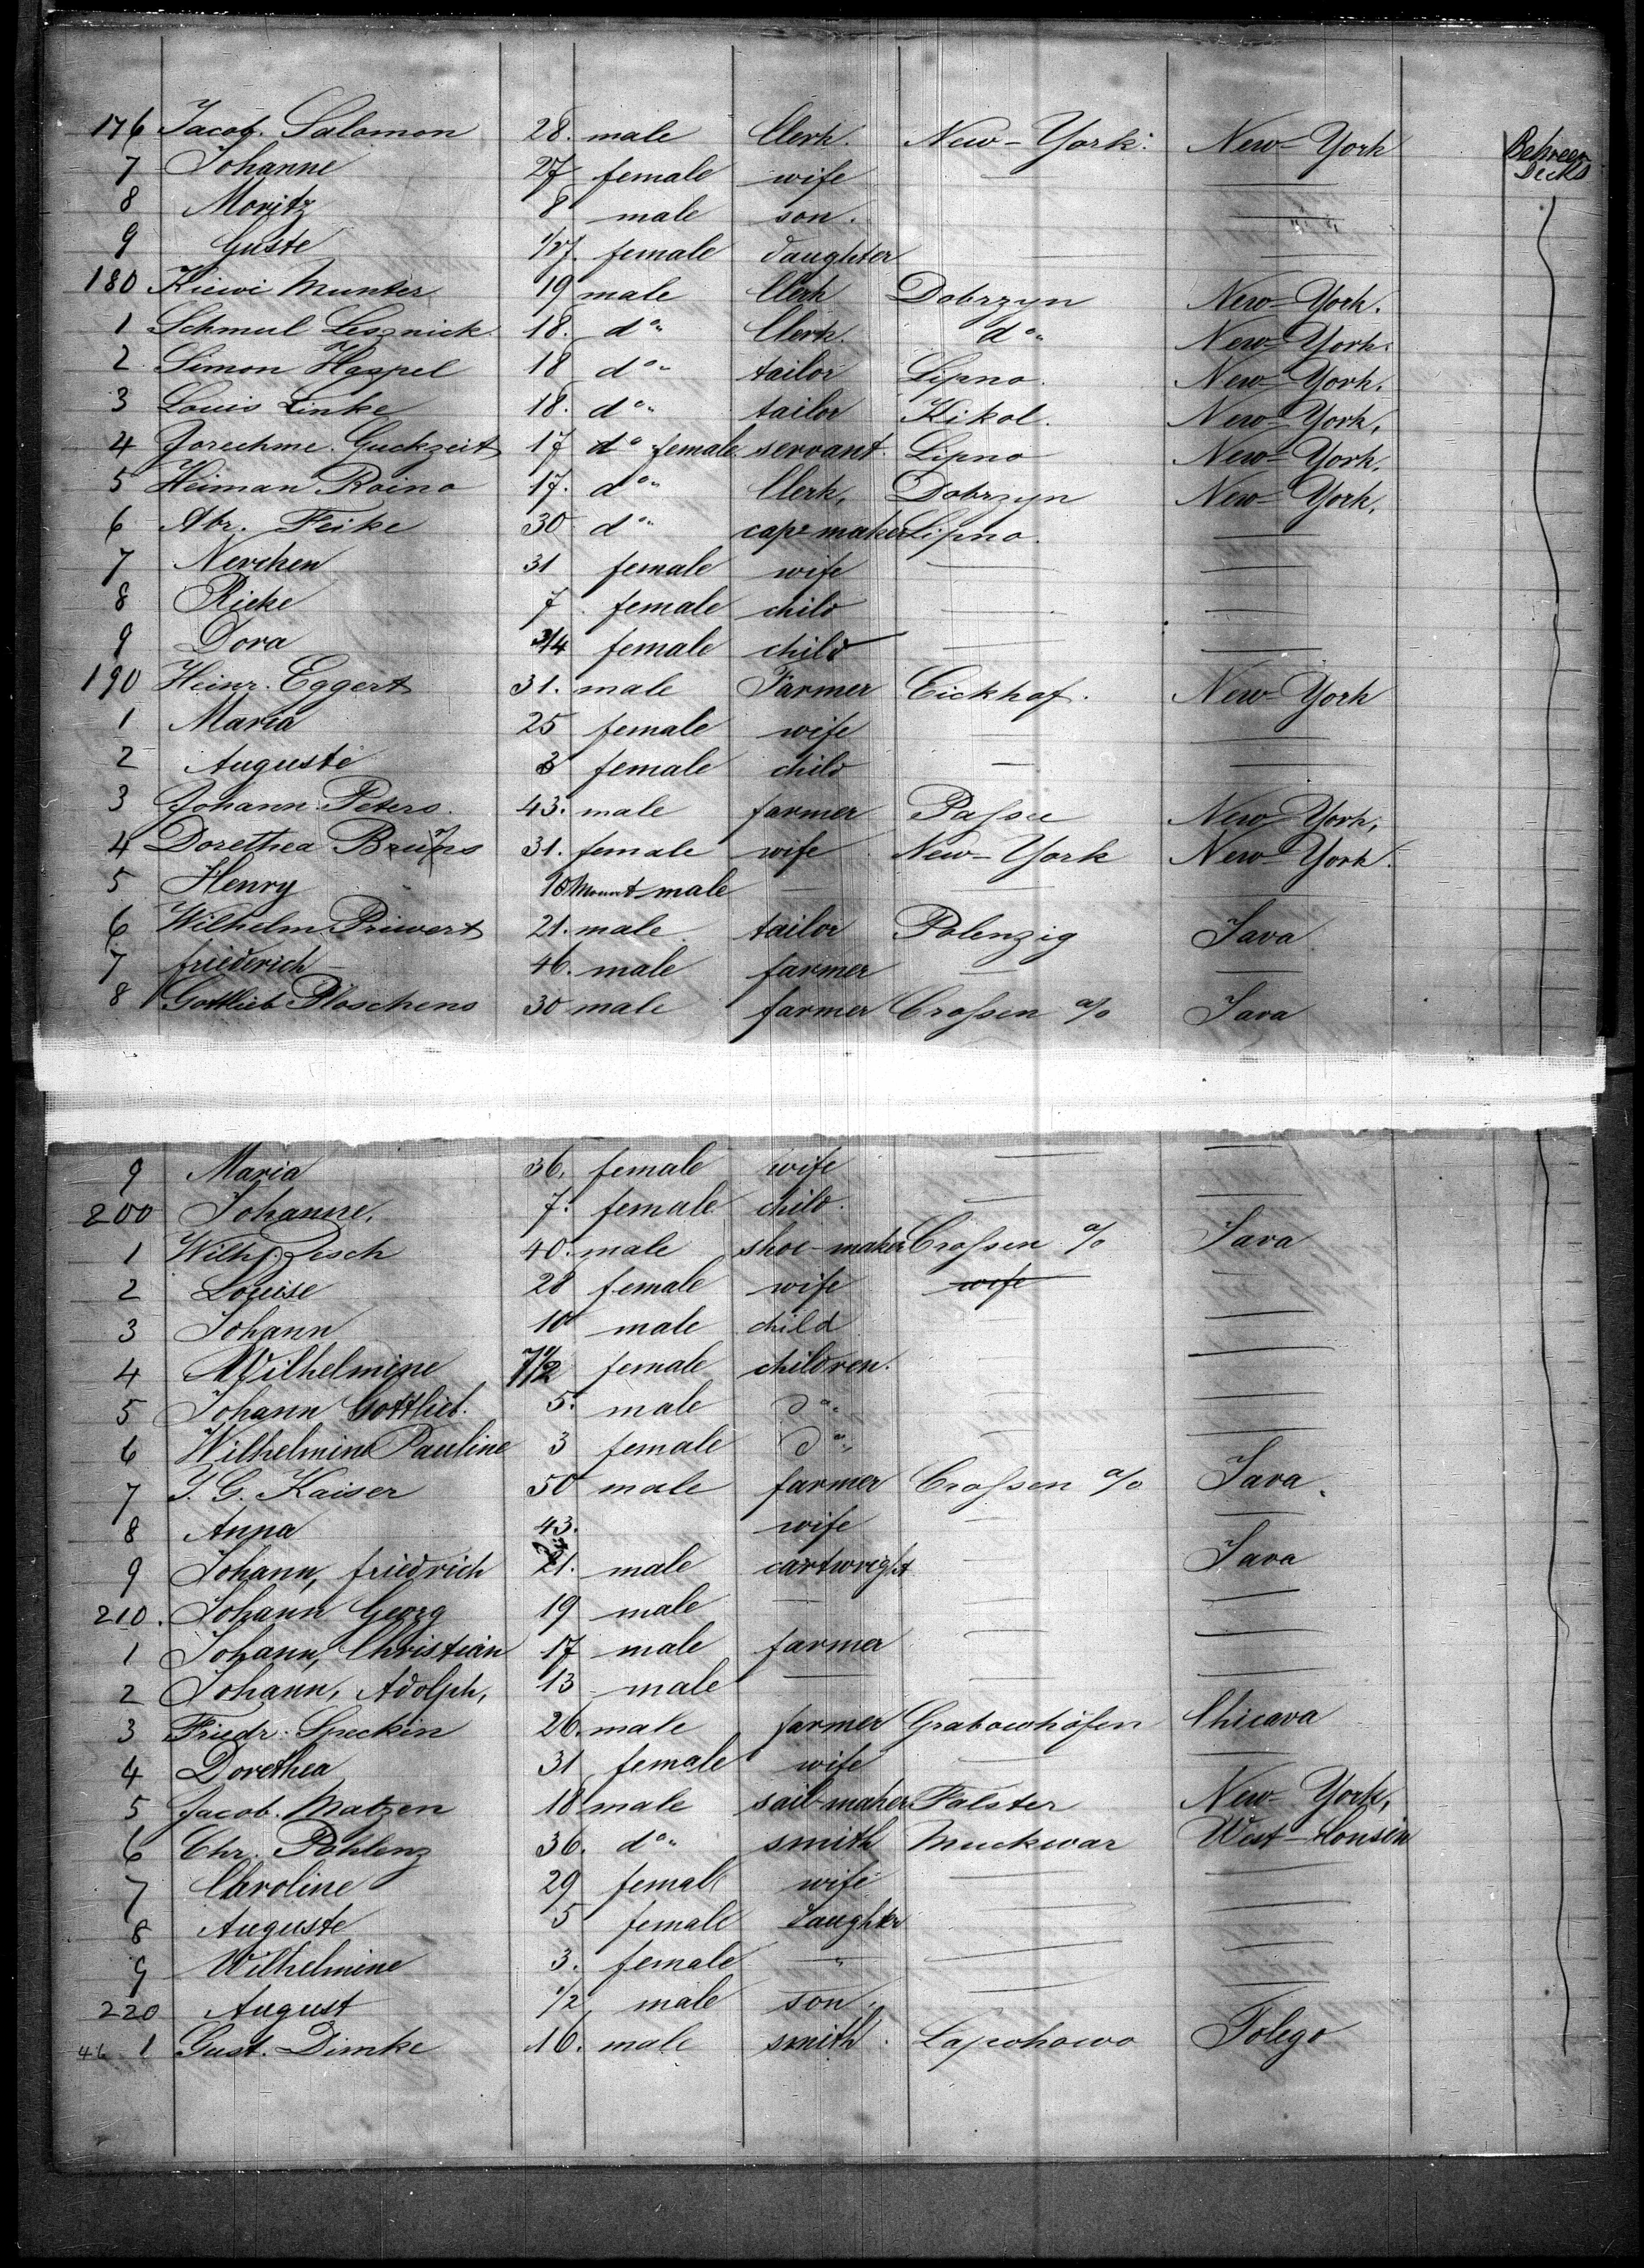 176 Jacob. Salomon 28. male Clerk. New-York. New-York Between Decks
7 Johanne 27 female wife — —
8 Moritz 8 male son. —
9 Guste female daughter — —
180 Kiewi Munter 19 male Clerk Dobrzyn New-York.
1 Schmul Lesznick 18. do Clerk. do New-York.
2 Simon Haspel 18 do tailor Lipno. New-York.
3 Louis Linke 18. do tailor Kikol. New-York,
4 Guckzeit 17 do female servant. Lipno New-York.
5 Heiman Roino 17. do Clerk, Dobrzyn New-York,
6 Abr. Feike 30 do cap-maker Lipno. —
7 Nerchen 31 female wife — —
8 Rieke 7 female child — —
9 Dora 3/4 female child — —
190 Heinr. Eggert 31. male Farmer Eickhof. New-York
1 Maria 25 female wife — —
2 Auguste 3 female child — —
3 Johann Peters. 43. male farmer Paſsee New-York,
4 Dorethea Bruhns 31. female wife New-York New-York.
5 Henry 10 male — —
6 Wilhelm Priwert 21. male tailor Polenzig Java
7 friederich — 46. male farmer — —
8 Gottlieb Ploschens 30 male farmer Croſsen a/o Java
9 Maria 36. female wife — —
200 Johanne. 7. female child. — —
1 Wilh. Resch 40. male shoe-maker Croſsen a/o Java
2 Louise 28 female wife wife —
3 Johann 10 male child — —
4 Wilhelmine 7 1/2 female children. — —
5 Johann Gottlieb. 5. male do — —
6 Wilhelmine Pauline 3 female do — —
7 J. G. Kaiser 50 male farmer Croſsen a/o Java.
8 Anna 43. wife — —
9 Johann, friedrich 21. male cartwright — Java
210. Johann Georg 19 male — — —
1 Johann, Christian 17 male farmer — —
2 Johann, Adolph, 13 male — — —
3 Friedr. Speckin 26. male farmer Grabowhöfen Chicava
4 Dorethea 31 female wife — —
5 Jacob. Matzen 18 male sail-maker Falster New-York,
6 Chr. Pohlenz 36. do smith Muckwar West-Consin
7 Caroline 29 female wife — —
8 Auguste 5 female daughter — —
9 Wilhelmine 3. female — " — —
220 August 1/2 male son. — —
46 1 Gust. Dimke 16. male smith. Lapohowo Tolego